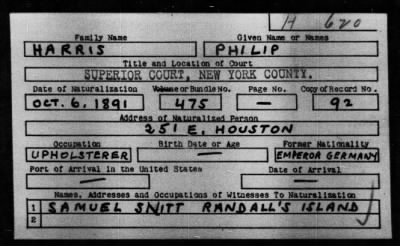 H 620
Family Name Given Name or Names
HARRIS PHILIP
Title and Location of Court
SUPERIOR COURT, NEW YORK COUNTY.
Date of Naturalization Volume or Bundle No. Page No. Copy of Record No.
OCT. 6. 1891 475 — 92
Address of Naturalized Person
251 E. HOUSTON
Occupation Birth Date or Age Former Nationality
UPHOLSTERER — EMPEROR GERMANY
Port of Arrival in the United States Date of Arrival
— —
Names, Addresses and Occupations of Witnesses To Naturalization
1 SAMUEL SNITT RANDALL'S ISLAND
2